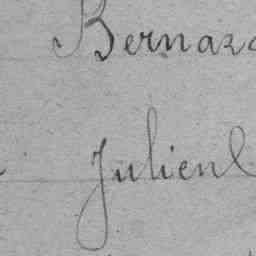 Bernard
Julien